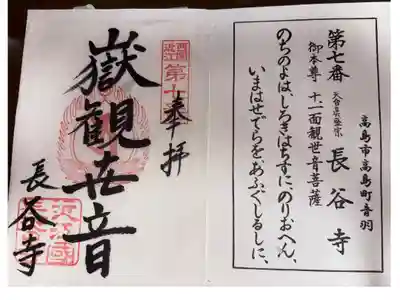 高島市高島町音羽
第七番 天台真盛宗 長谷寺
御本尊 十一面観世音菩薩
のちのよは、しろきはちすにのりおへん、
いまはせでらをあふぐしるしに、
奉拝
西国
近江
第七
嶽観世音
長谷寺
近江國